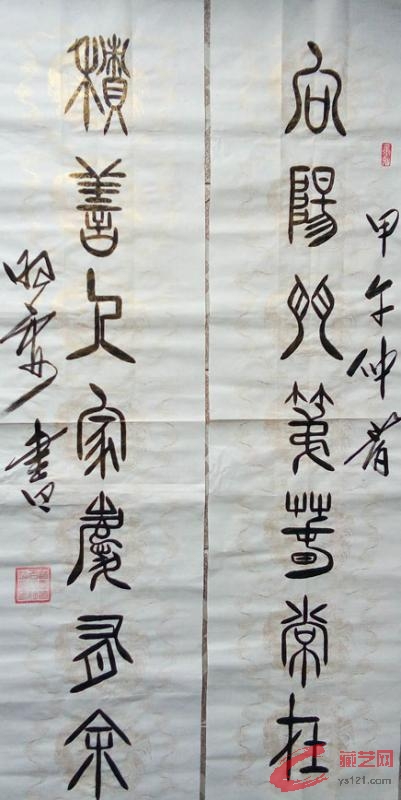 向陽門第春常在
甲午仲春
積善人家慶有余
書
藏艺网
ys121.com